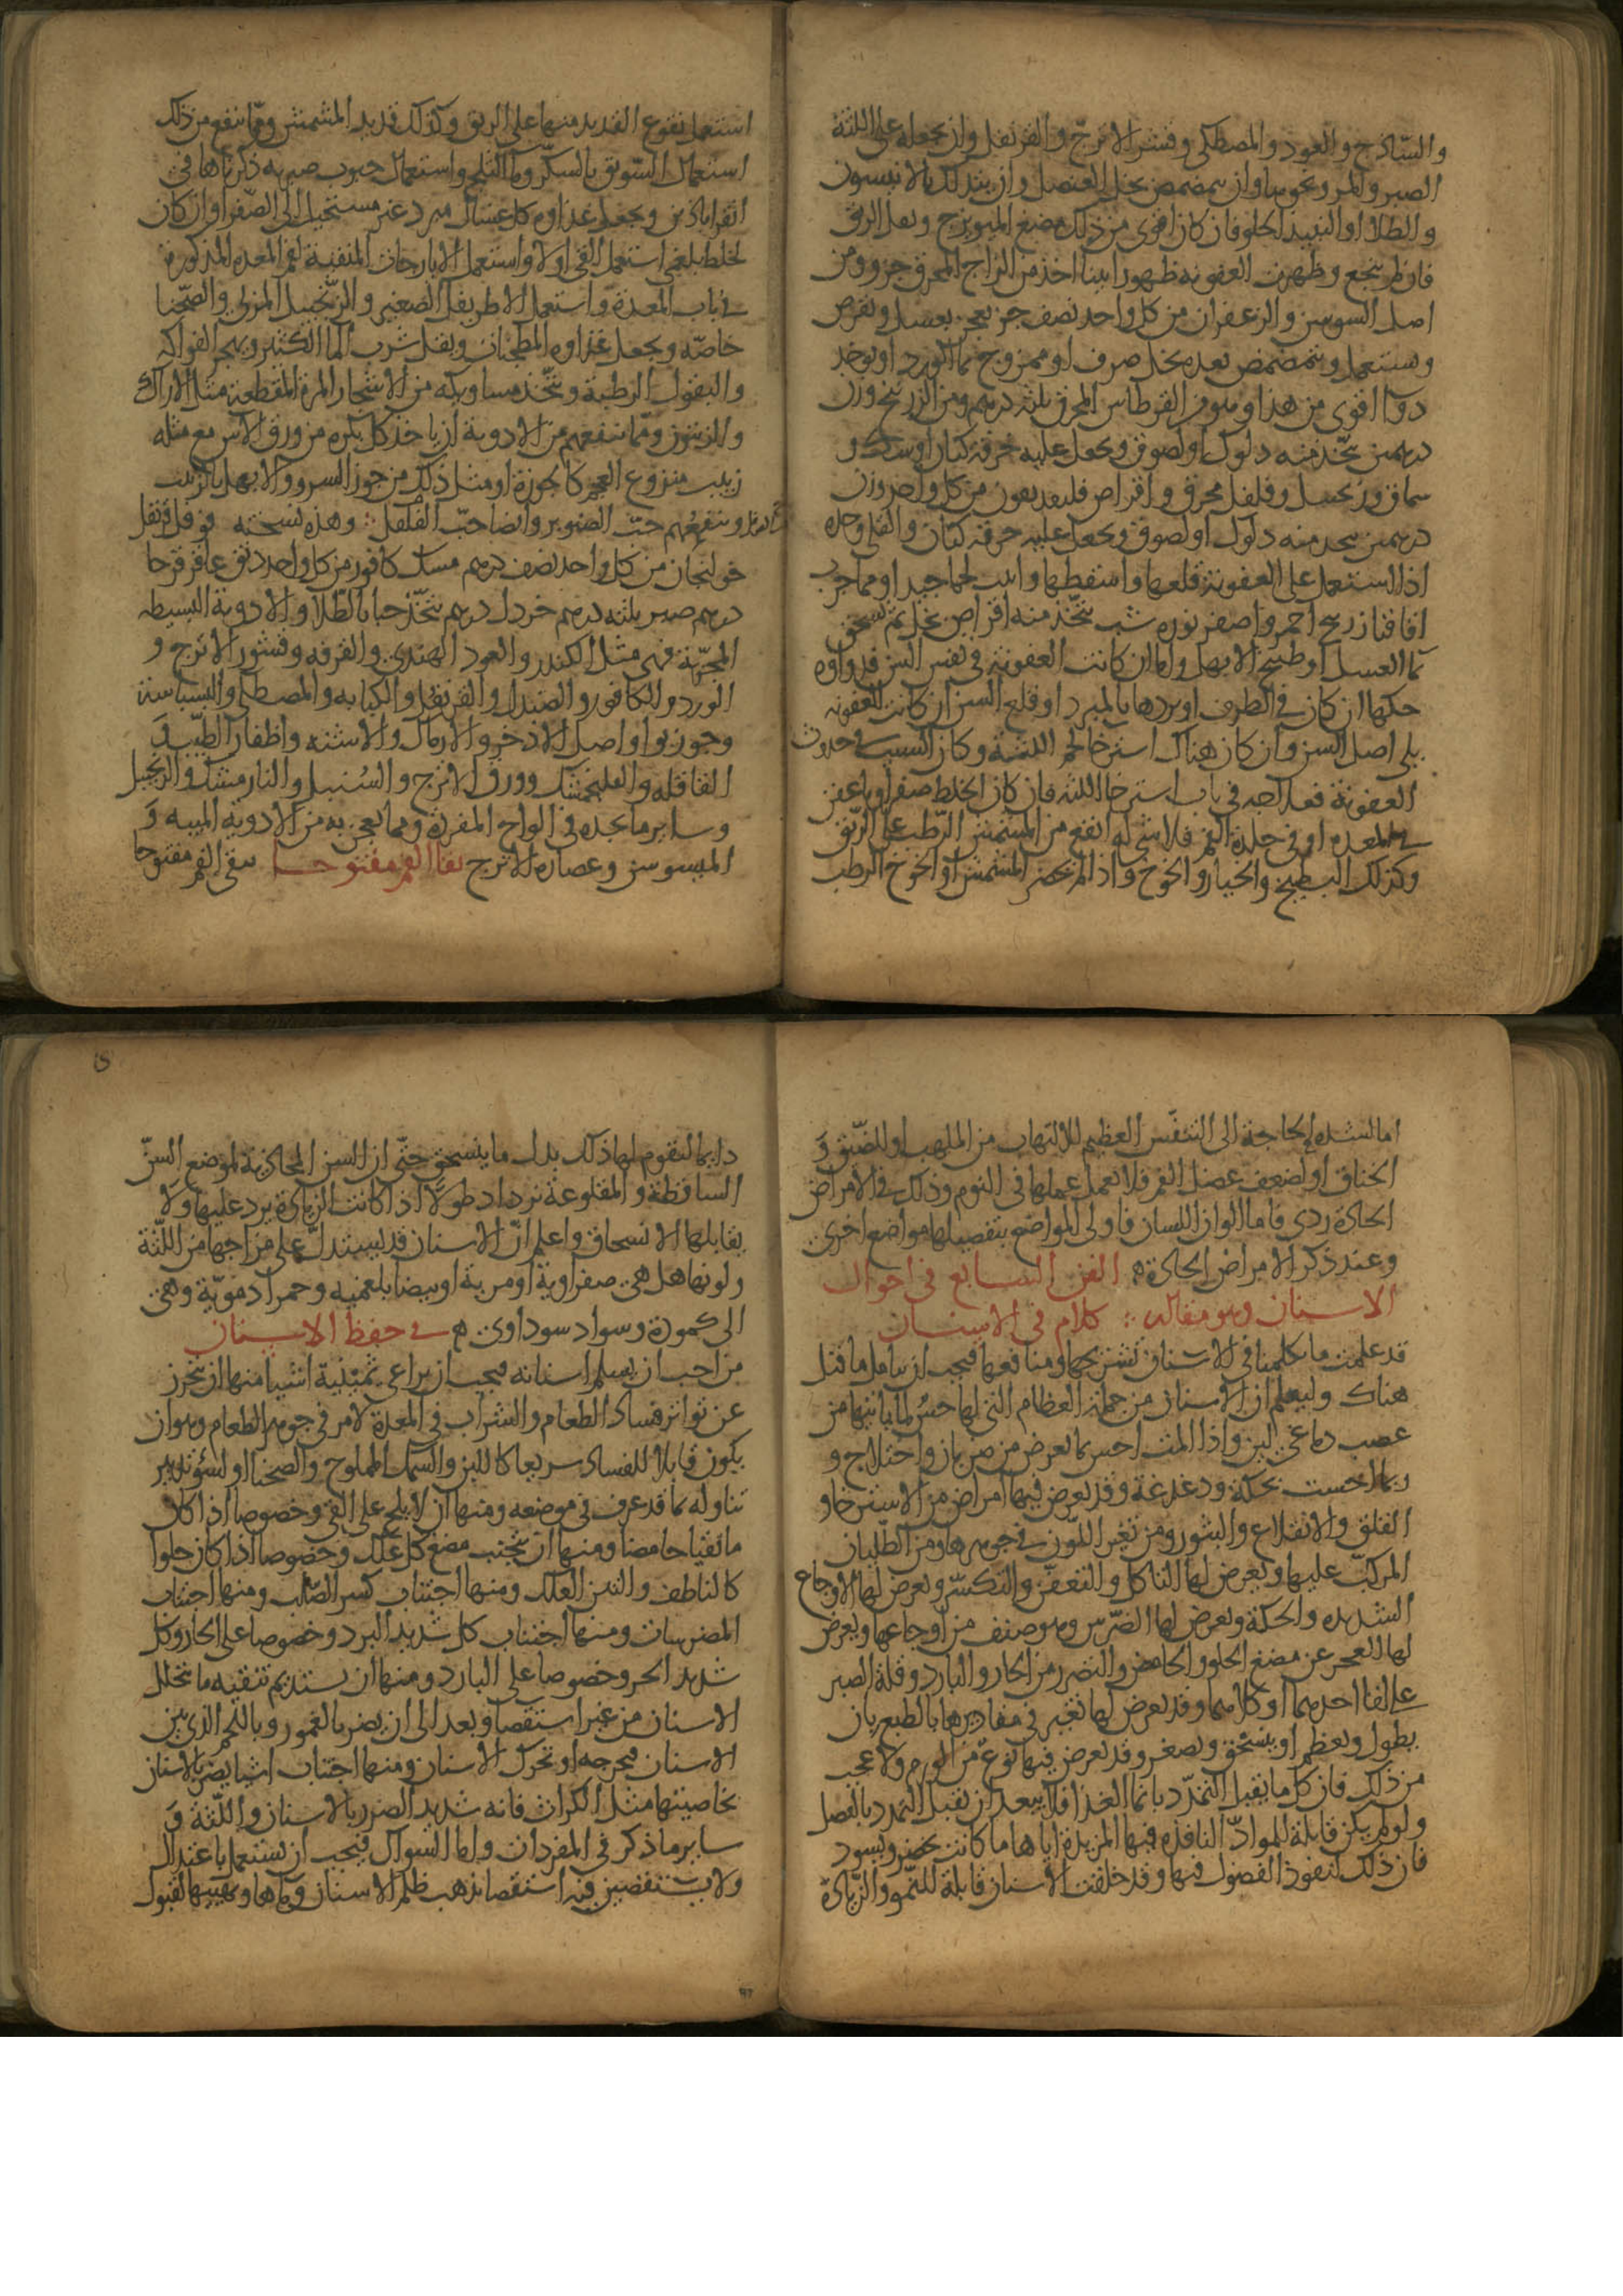 والساذج والعود والمصطكى وقشر الاترج والقرنفل وان يجعله على اللثة
الصبر والمر ونحوهما وان يتمضمض بخل العنصل وان يتدلك بالانيسون
والطلا او النبيذ الحلو فان كان اقوى من ذلك مضغ الميويزج وتفل الريق
فان لم ينجع وظهرت العفونة ظهورا بينا اخذ من الزاج المحرق جزو ومن
اصل السوسن والزعفران من كل واحد نصف جز يعجن بعسل ويقرص
ويستعمل ويتمضمض بعده بخل صرف او ممزوج بما الورد او يوخذ
دوآ اقوى من هذا وهو من القرطاس المحرق ثلثه درهم ومن الزرنيخ وزن
درهمين يتخذ منه دلوك او لصوق ويجعل عليه خرقة كتان او سك و
سماق وزنجبيل وفلفل محرق واقراص فلديقون من كل واحد وزن
درهمين يتخذ منه دلوك او لصوق ويجعل عليه خرقة كتان والقلى وحده
اذا استعمل على العفونة قلعها واسقطها وانبت لحما جيدا ومما جرب
اقاقيا زرنيخ احمر واصفر نوره شب يتخذ منه اقراص بخل ثم تسحق
بما العسل او طبيخ الابهل واما ان كانت العفونة في نفس السن فدواوه
حكها ان كان في الطرف او بردها بالمبرد او قلع السن ان كانت العفونه
يلى اصل السن وان كان هناك استرخا لحم اللثة وكان السبب في حدوث
العفونة فعالجه في باب استرخا اللثه فان كان الخلط صفراويا عفن
في المعده او في جلدة الفم فلا شى له انفع من المشمش الرطب على الريق
وكذلك البطيخ والخيار والخوخ واذا لم يحضر المشمش او الخوخ الرطب
استعمل نقوع القديد منها على الريق وكذلك قديد المشمش ومما ينفع من ذلك
استعمال السويق بالسكر وما الثلج واستعمال حبوب صبريه ذكرناها في
اقراباذين ويجعل غذاوه كل غسال مبرد غير مستحيل الى الصفرا وان كان
لخلط بلغمى استعمل القى اولا واستعمل الايارجات المنقية لفم المعده المذكورة
في باب المعدة واستعمل الاطريفل الصغير والزنجبيل المربى والصحنا
خاصه ويجعل غذاوه المطجنات ويقل شرب الما الكثير ويهجر الفواكه
والبقول الرطبة ويتخذ مساويكه من الاشجار المرة المقطعة مثل الاراك
والزيتون ومما ينفعهم من الادوية ان ياخذ كل بكره من ورق الاس مع مثله
زبيب منزوع العجم كالجوزة او مثل ذلك من جوز السرو والابهل بالزبيب
وينفعهم حب الصنوبر وايضا حب الفلفل وهذه نسخته فوفل قرنفل
خولنجان من كل واحد نصف درهم مسك كافور من كل واحد دنق عاقرقرحا
درهم صبر ثلثه درهم خردل درهم يتخذ حبا بالطلا والادوية البسيطه
المجربة فهى مثل الكندر والعود الهندى والقرفه وقشور الاترج و
الورد والكافور والصندل والقرنفل والكبابه والمصطكى والبسباسة
وجوز بوا واصل الاذخر والارماك والاشنه واظفار الطيب و
القاقله والفلنجمشك وورق الاترج والسنبل والنارمشك والزنجبيل
وساير ما تجده في الواح المفردة ومما يعجن به من الادوية الميبه و
الميسوسن وعصاره الاترج بقا الفم مفتوحا يبقى الفم مفتوحا
اما لشدة الحاجة الى التنفس العظيم للالتهاب من الملهب او للضيق و
الخناق او لضعف عضل الفم فلا تعمل عملها في النوم وذلك في الامراض
الحادة ردى فاما الوان اللسان فاولى المواضع بتفصيلها مواضع اخرى
وعند ذكر الامراض الحادة الفن السابع في احوال
الاسنان وهو مقاله كلام في الاسنان
قد علمت ما تكلمنا في الاسنان تشريحها ومنافعها فيجب ان يتامل ما قيل
هناك وليعلم ان الاسنان من جملة العظام التى لها حس لما ياتيها من
عصب دماغى لين واذا المت احس بما يعرض من ضربان واختلاج و
ربما احست بحكة ودغدغة وقد يعرض فيها امراض من الاسترخا و
القلق والانقلاع والبثور ومن تغير اللون في جوهرها ومن الطليان
المركب عليها ويعرض لها التاكل والتعفن والتكسر ويعرض لها الاوجاع
الشديده والحكة ويعرض لها الضرس وهو صنف من اوجاعها ويعرض
لها العجز عن مضغ الحلو والحامض والتضرر من الحار والبارد وقلة الصبر
على لقا احدهما او كلاهما وقد يعرض لها تغير في مقاديرها بالطبع بان
يطول ويعظم او ينسحق ويصغر وقد يعرض فيها نوع من الورم ولا عجب
من ذلك فان كل ما يقبل التمدد بانما الغذا فلا يبعد ان يقبل التمدد بالفصل
ولو لم يكن قابلة للمواد النافذه فيها المزيدة اياها ما كانت تخضر ويسود
فان ذلك لنفوذ الفضول فيها وقد خلقت الاسنان قابلة للنمو والزيادة
دايما لتقوم لها ذلك بدل ما ينسحق حتى ان السن المحاذية لموضع السن
الساقطة والمقلوعة تزداد طولا اذا كانت الزيادة يرد عليها ولا
يقابلها الانسحاق واعلم ان الاسنان قد يستدل على مزاجها من اللثة
ولونها هل هى صفراوية او مرية او بيضا بلغميه وحمرا دموية وهى
الى كمودة وسواد سوداوى في حفظ الاسنان
من احب ان يسلم اسنانه فيجب ان يراعى ثمنية اشيا منها ان يتحرز
عن تواتر فساد الطعام والشراب في المعدة لامر في جوهر الطعام وهو ان
يكون قابلا للفساد سريعا كاللبن والسمك المملوح والصحنا او لسؤ تدبير
تناوله بما قد عرف في موضعه ومنها ان لا يلح على القى وخصوصا اذا كان
ما تقيا حامضا ومنها ان يجتنب مضغ كل علك وخصوصا اذا كان حلوا
كالناطف والتين العلك ومنها اجتناب كسر الصلب ومنها اجتناب
المضرسات ومنها اجتناب كل شديد البرد وخصوصا على الحار وكل
شديد الحر وخصوصا على البارد ومنها ان يستديم تنقيه ما تخلل
الاسنان من غير استقصا وبعد الى ان يضر بالعمور وباللحم الذى بين
الاسنان فيخرجه او تحرك الاسنان ومنها اجتناب اشيا يضر بالاسنان
بخاصيتها مثل الكراث فانه شديد الضرر بالاسنان واللثة و
ساير ما ذكر في المفردات واما السواك فيجب ان يستعمل باعتدال
ولا يستقصى فيه استقصا يذهب ظلم الاسنان وماها ويهييها لقبول